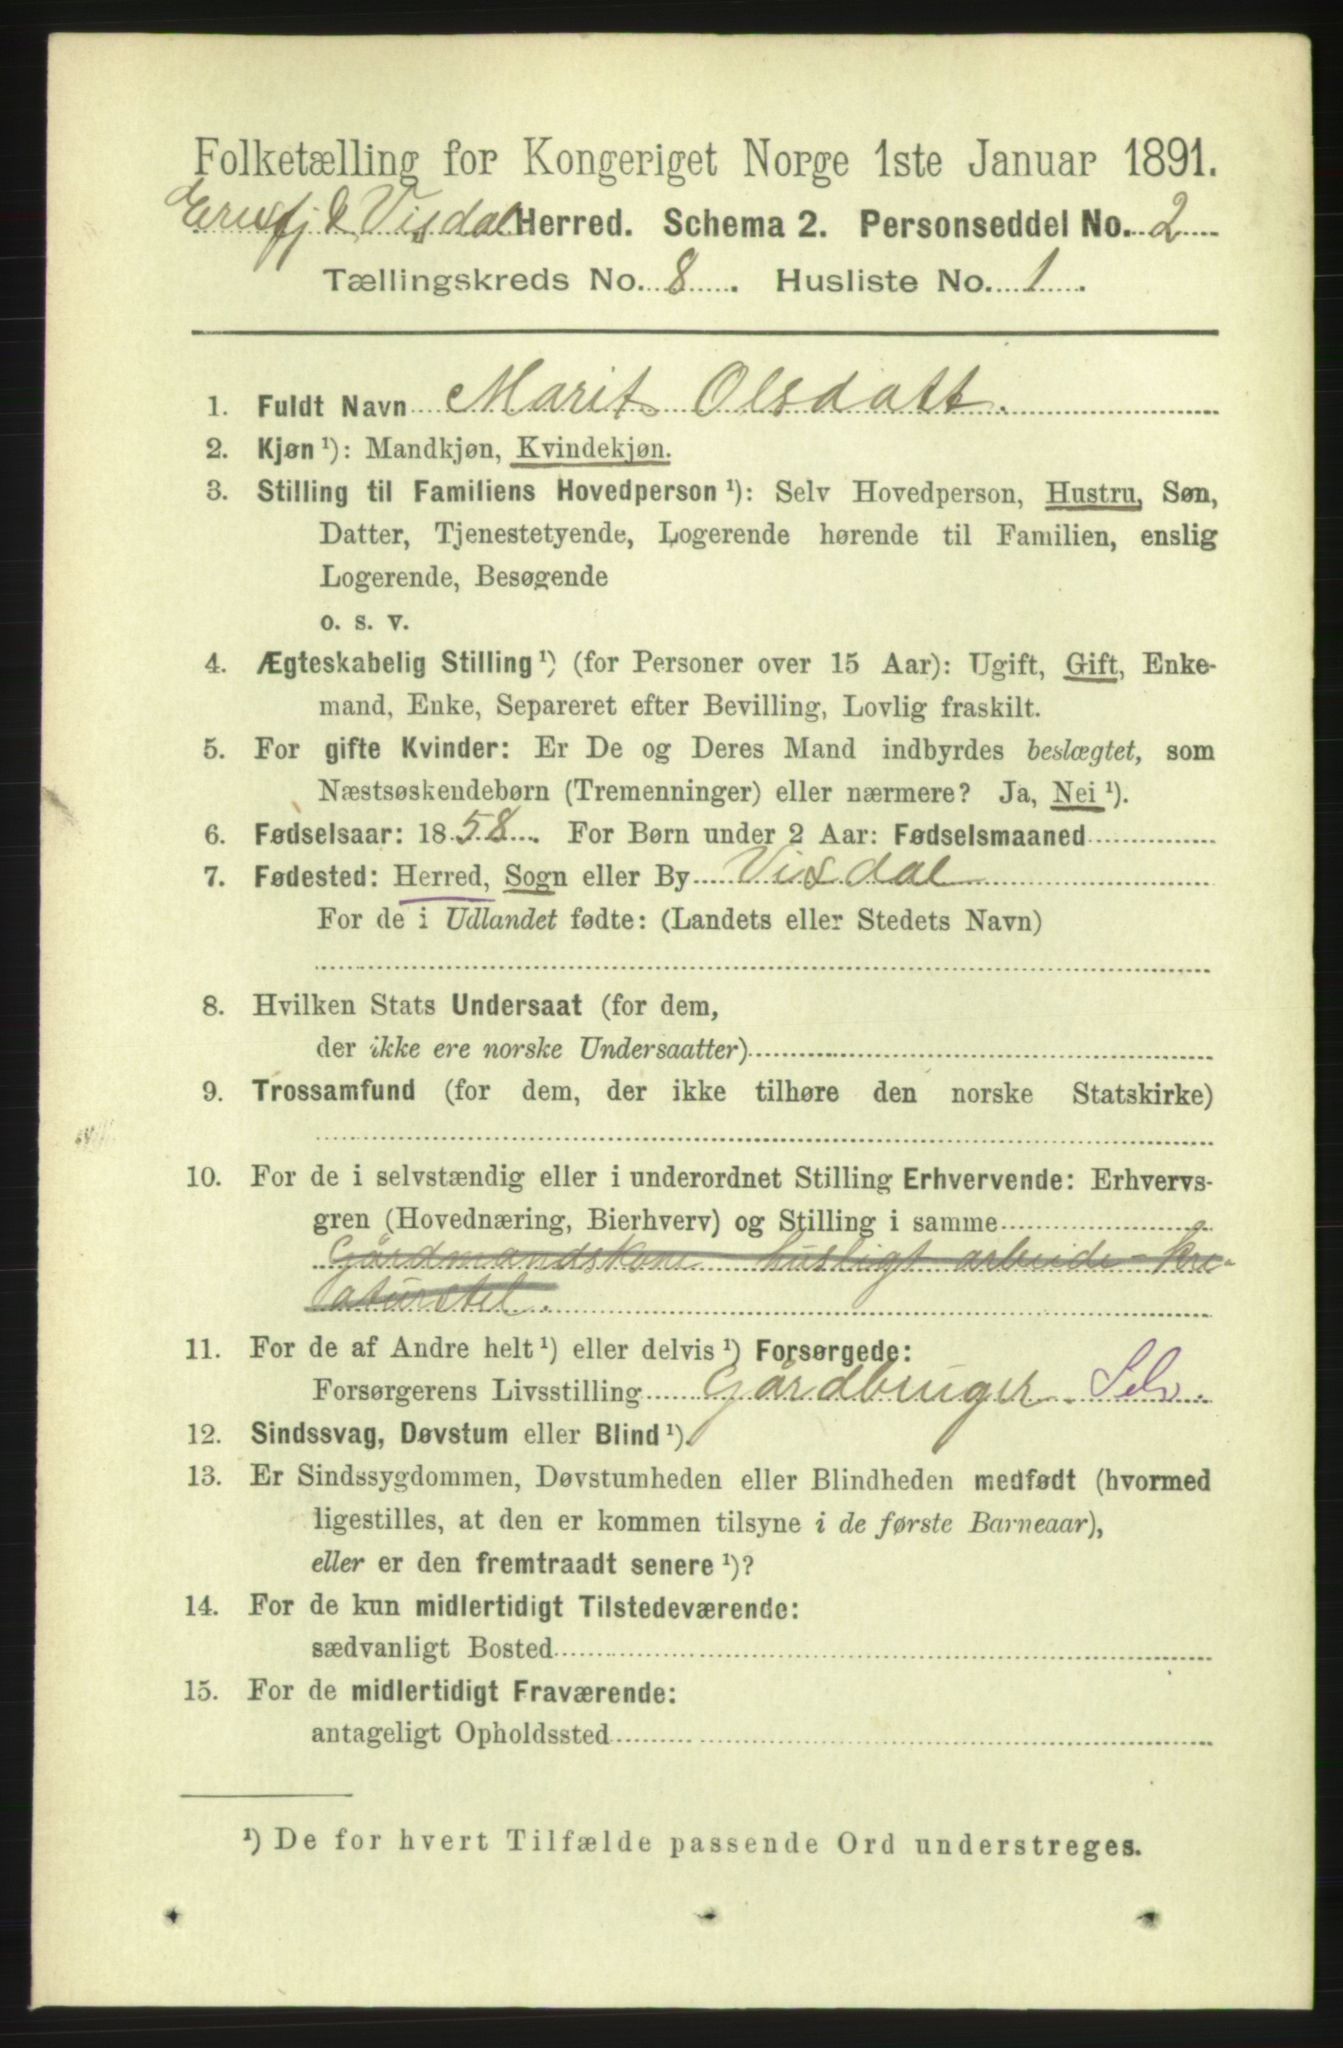 Folketælling for Kongeriget Norge 1ste Januar 1891.
Erisfj & Visdal Herred. Schema 2. Personseddel No. 2
Tællingskreds No. 8. Husliste No. 1.
1. Fuldt Navn Marit Olsdatt.
2. Kjøn ¹): Mandkjøn, Kvindekjøn.
3. Stilling til Familiens Hovedperson ¹): Selv Hovedperson, Hustru, Søn,
Datter, Tjenestetyende, Logerende hørende til Familien, enslig
Logerende, Besøgende
o. s. v.
4. Ægteskabelig Stilling ¹) (for Personer over 15 Aar): Ugift, Gift, Enke-
mand, Enke, Separeret efter Bevilling, Lovlig fraskilt.
5. For gifte Kvinder: Er De og Deres Mand indbyrdes beslægtet, som
Næstsøskendebørn (Tremenninger) eller nærmere? Ja, Nei ¹).
6. Fødselsaar: 1858. For Børn under 2 Aar: Fødselsmaaned
7. Fødested: Herred, Sogn eller By Visdal
For de i Udlandet fødte: (Landets eller Stedets Navn)
8. Hvilken Stats Undersaat (for dem,
der ikke ere norske Undersaatter)
9. Trossamfund (for dem, der ikke tilhøre den norske Statskirke)
10. For de i selvstændig eller i underordnet Stilling Erhvervende: Erhvervs-
gren (Hovednæring, Bierhverv) og Stilling i samme
Gårdmandskone husligt arbeide - kre-
aturstel.
11. For de af Andre helt ¹) eller delvis ¹) Forsørgede:
Forsørgerens Livsstilling Gårdbruger. Selv.
12. Sindssvag, Døvstum eller Blind ¹).
13. Er Sindssygdommen, Døvstumheden eller Blindheden medfødt (hvormed
ligestilles, at den er kommen tilsyne i de første Barneaar),
eller er den fremtraadt senere ¹)?
14. For de kun midlertidigt Tilstedeværende:
sædvanligt Bosted
15. For de midlertidigt Fraværende:
antageligt Opholdssted
¹) De for hvert Tilfælde passende Ord understreges.